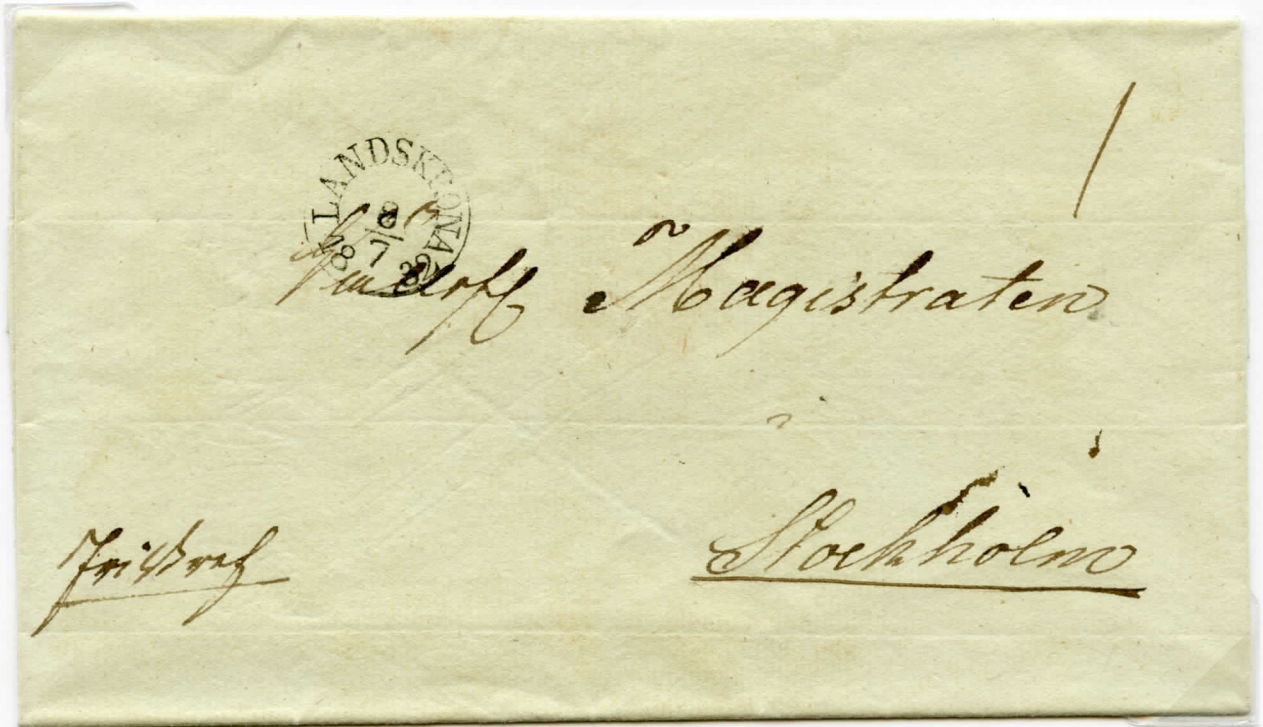 LANDSKRONA
8
7
1832
1
Magistraten
i
Stockholm
Fribref